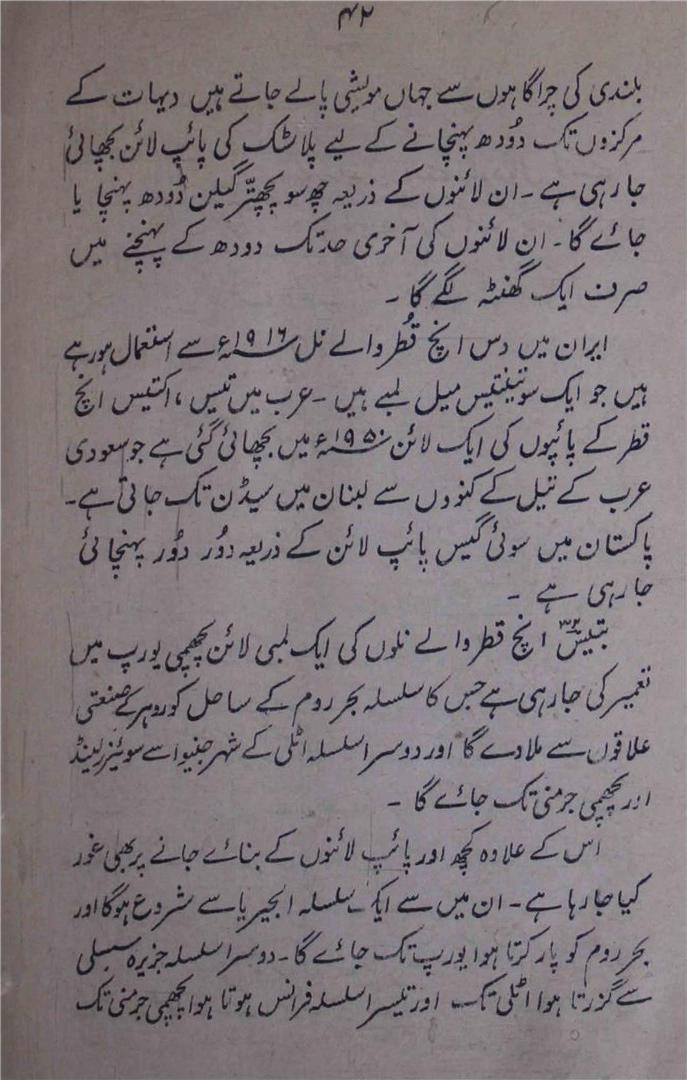 ۴۲
بلندی کی چراگاہوں سے جہاں مویشی پالے جاتے ہیں دیہات کے
مرکزوں تک دودھ پہنچانے کے لیے پلاسٹک کی پائپ لائن بچھائی
جا رہی ہے۔ ان لائنوں کے ذریعہ چھ سو پچھتّر گیلن دُودھ پہنچا یا
جائے گا۔ ان لائنوں کی آخری حد تک دودھ کے پہنچنے میں
صرف ایک گھنٹہ لگے گا ۔
ایران میں دس انچ قُطر والے نل ۱۹۱۶ء سے استعمال ہو رہے
ہیں جو ایک سو تینتیس میل لمبے ہیں ۔ عرب میں تیس ، اکتیس انچ
قطر کے پائپوں کی ایک لائن ۱۹۵۰ء میں بچھائی گئی ہے جو سعودی
عرب کے تیل کے کنوؤں سے لبنان میں سیڈن تک جاتی ہے۔
پاکستان میں سوئی گیس پائپ لائن کے ذریعہ دُور دُور پہنچائی
جا رہی ہے ۔
بتیس ۳۲ انچ قطر والے نلوں کی ایک لمبی لائن پچھمی یورپ میں
تعمیر کی جا رہی ہے جس کا سلسلہ بحر روم کے ساحل کو روہر کے صنعتی
علاقوں سے ملا دے گا اور دوسرا سلسلہ اٹلی کے شہر جنیوا سے سوئیزرلینڈ
اور پچھمی جرمنی تک جائے گا ۔
اس کے علاوہ کچھ اور پائپ لائنوں کے بنائے جانے پر بھی غور
کیا جا رہا ہے۔ ان میں سے ایک سلسلہ الجیریا سے شروع ہوگا اور
بحر روم کو پار کرتا ہوا یورپ تک جائے گا۔ دوسرا سلسلہ جزیرہ سسلی
سے گزرتا ہوا اٹلی تک اور تیسرا سلسلہ فرانس ہوتا ہوا پچھمی جرمنی تک